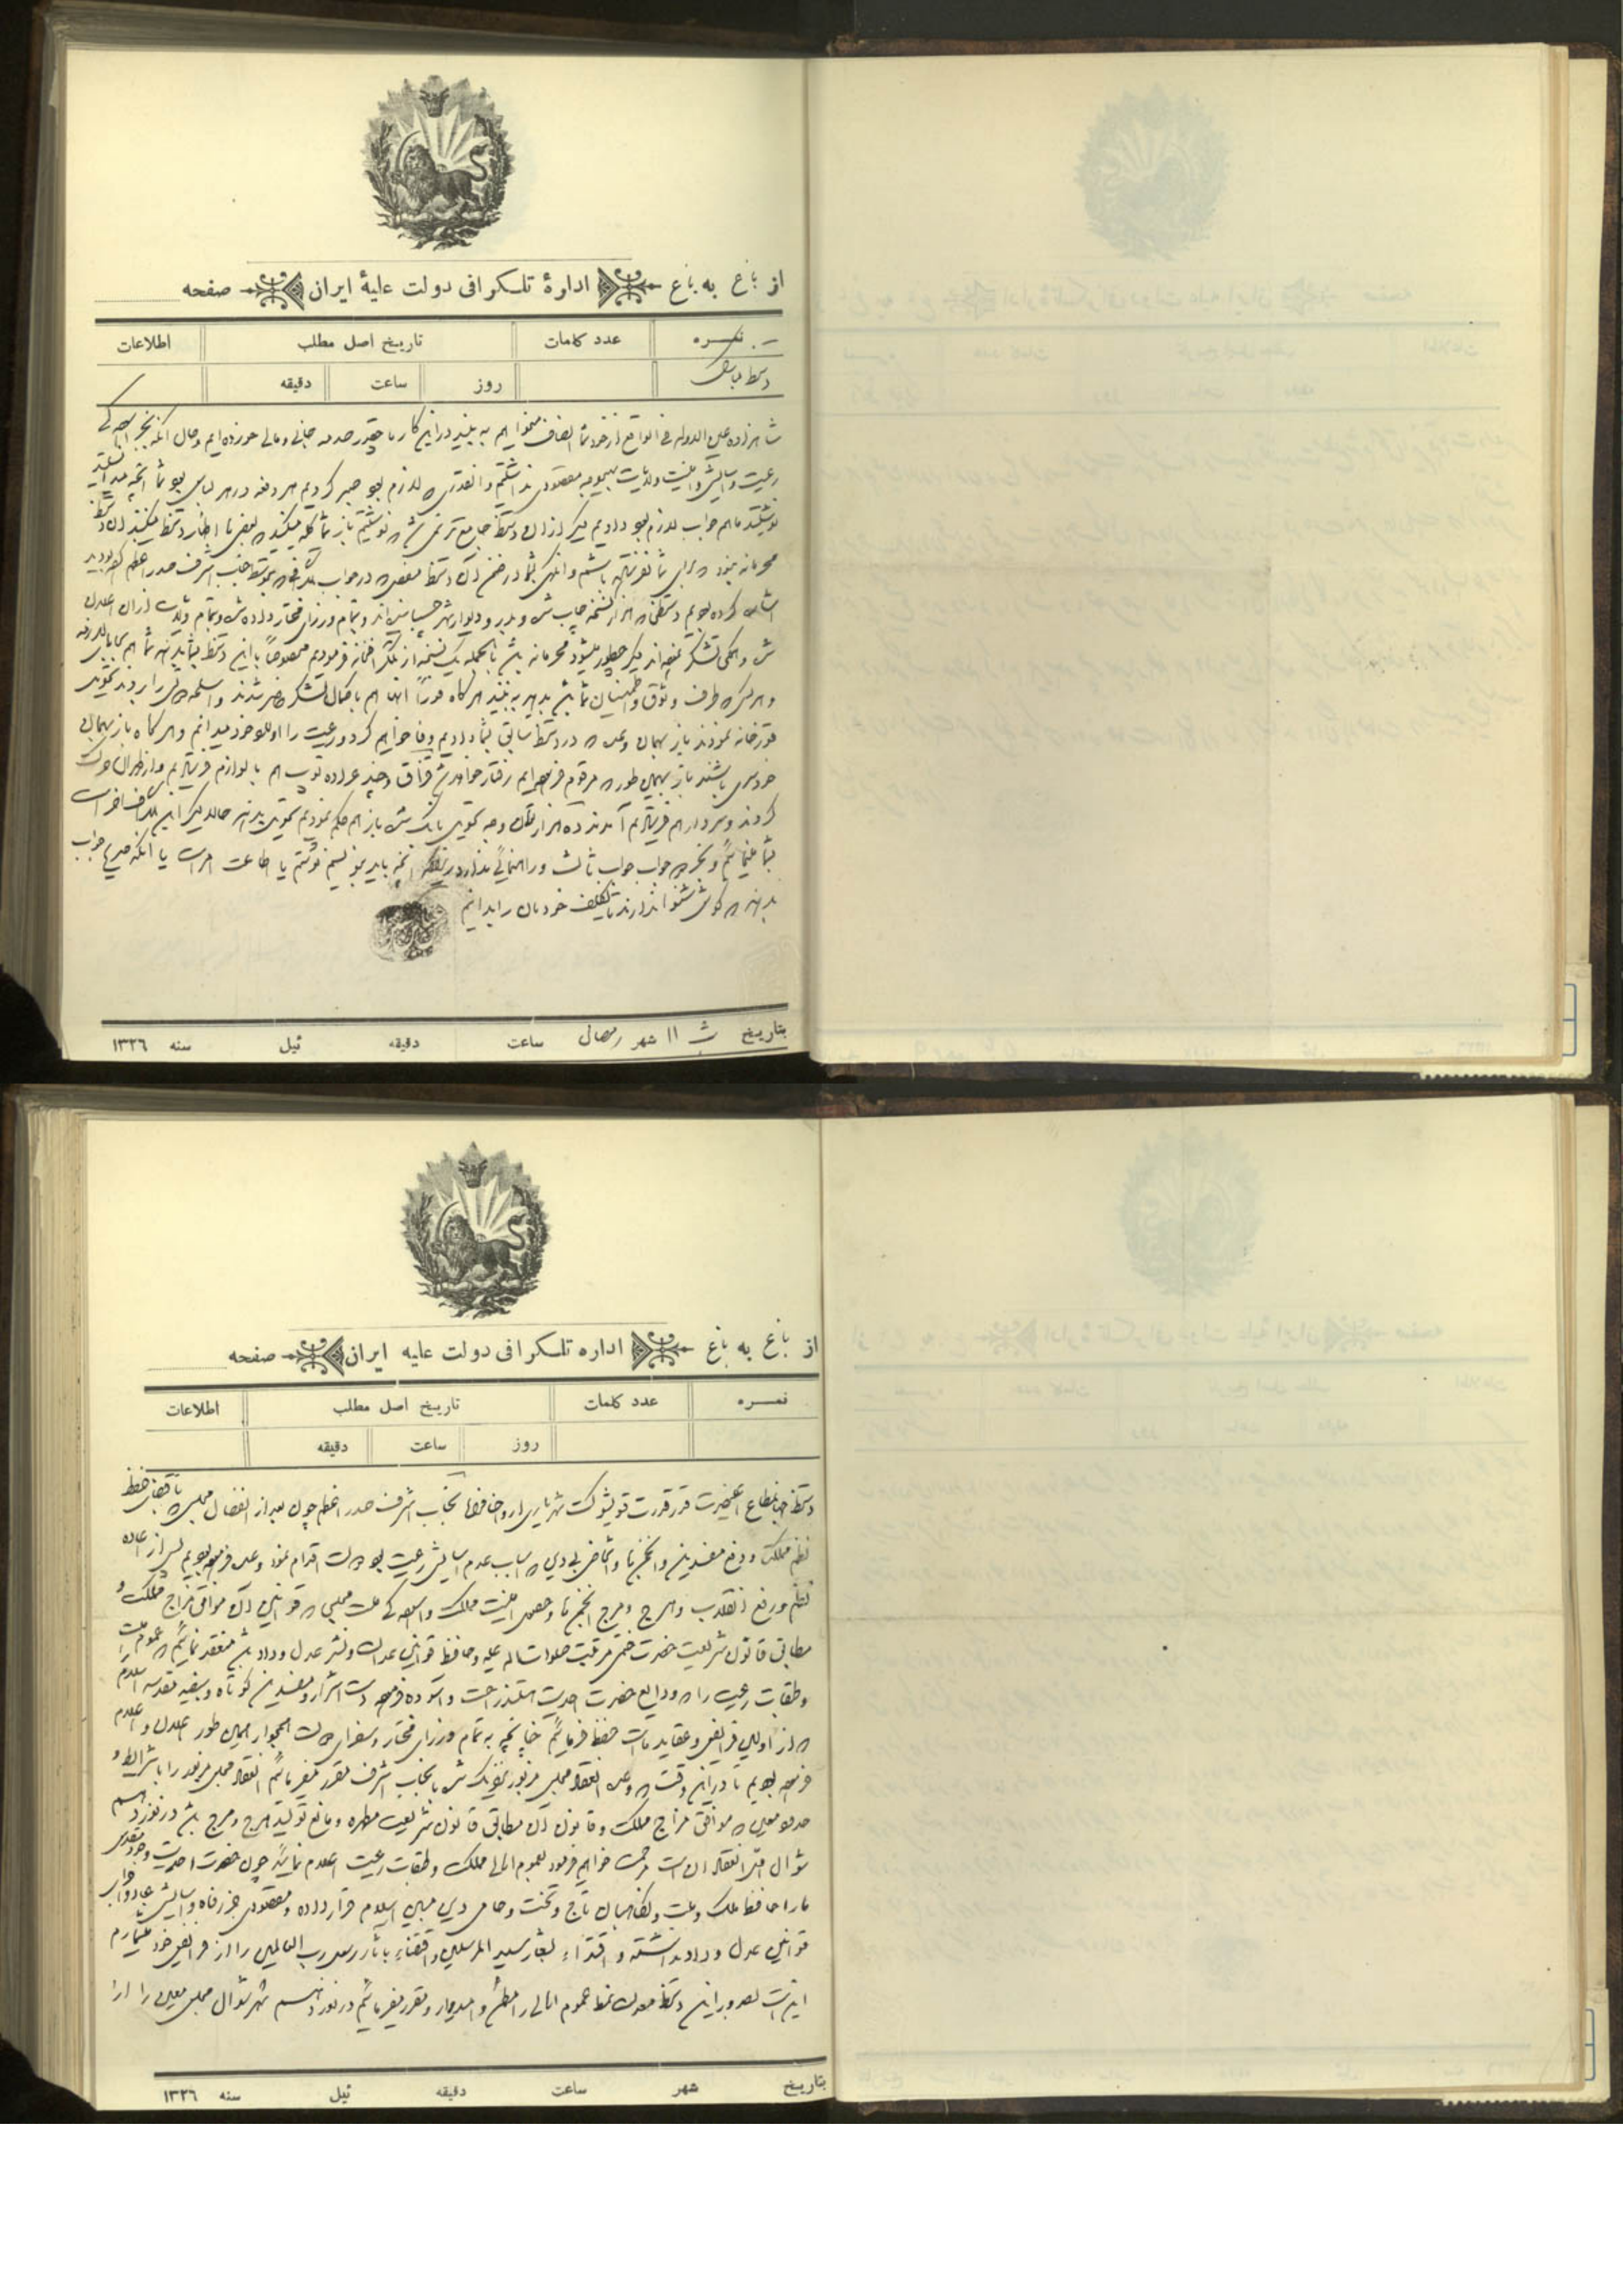 از باغ به باغ اداره تلگرافی دولت علیهٔ ایران صفحه
نمره عدد کلمات تاریخ اصل مطلب اطلاعات
روز ساعت دقیقه
شاهزاده عین الدوله فی الواقع از خود شما انصاف میخواهیم به بینید در این کار ما چقدر صدمه جانی و مالی خورده ایم و حال آنکه بجز
رعیت و امنیت ولایت بهیچوجه مقصودی نداشتیم و آنقدری که لازم بود صبر کردیم هر دفعه در هر لباس بود شما آنچه
نوشتید ما هم جواب لازم بود دادیم دیگر از آن دستخط جامع تر نمی شد که نوشتیم باز شما گله میکنید که بعضی ها اظهار دستخط میکنند آن دستخط
محرمانه نبود که برای شما در ضمن آن دستخط مفصل که در جواب تلگرافی که بتوسط جناب اشرف صدر اعظم کرده بودید
اشاره کرده بودیم دستخطی که هزار نسخه چاپ شده و بدر و دیوار شهر چسبانیده اند و بتمام وزرای مختار داده شده و بتمام ولایات از آن اعلان
شده و همگی تشکر نموده اند دیگر چطور میشود محرمانه باشد بالجمله یک نسخه از تلگرافخانه فرمودیم مخصوصاً با این دستخط بشما بدهند شما هم
و هر کس که طرف وثوق و اطمینان شما باشد بدهید به بینند هر گاه فوراً آنها هم با کمال تشکر حاضر شدند و اسلحه دولتی را بردند تحویل
قورخانه نمودند باز بهمان وعده که در دستخط سابق بشما دادیم وفا خواهیم کرد و رعیت را اولاد خود میدانم و هر گاه باز بهمان
خودسری باشند باز بهمان طور که مرقوم فرموده ایم رفتار خواهد شد قزاق و چند عراده توپ هم با لوازم فرستادیم و از طهران حرکت
کردند و سردار هم فرستادیم آمدند ده هزار تومان وجه تحویل بانک شد باز هم حکم نمودیم تحویل بدهند حالا دیگر این تلگراف آخر است
بشما مینمائیم و بجز جواب جواب ثالث و راهنمائی ندارد آنچه باید بنویسیم نوشتم یا اطاعت امر است یا آنکه صریح جواب
بدهند که گوش شنوا ندارند تا تکلیف خودمان را بدانیم
بتاریخ ۱۱ شهر رمضان ساعت دقیقه ئیل سنه ۱۳۲۶
از باغ به باغ اداره تلگرافی دولت علیه ایران صفحه
نمره عدد کلمات تاریخ اصل مطلب اطلاعات
روز ساعت دقیقه
دستخط جهانمطاع اعلیحضرت قدر قدرت قویشوکت شهریاری ارواحنا فداه بجناب اشرف صدر اعظم چون بعد از انفصال مجلس
نظم مملکت و دفع مفسدین و انجمن ها و اشخاص بی دین که اسباب عدم آسایش رعیت بود دولت اقدام نمود وعده فرموده بودیم پس از اعاده
نظم و رفع انقلاب و هرج و مرج انجمن ها و حصول امنیت مملکت و آسودگی ملت مجلسی که قوانین آن موافق مزاج مملکت و
مطابق قانون شریعت حضرت ختمی مرتبت صلوات اله علیه و حافظ قوانین عدالت و نشر عدل و داد باشد منعقد نمائیم که عموم ملت
و طبقات رعیت را که ودایع حضرت احدیت هستند راحت و آسوده فرموده دست اشرار و مفسدین کوتاه و بیضه مقدسه اسلام
که از اولین فرایض و عقاید ماست حفظ فرمائیم چنانچه به تمام وزرای مختار و سفرای دولت همجوار همین طور اعلان و اعلام
فرموده بودیم تا در این وقت که وعده انعقاد مجلس مزبور نزدیک شده بآنجناب اشرف مقرر میفرمائیم انعقاد مجلس مزبور را با شرایط و
حدود معین که موافق مزاج مملکت و قانون آن مطابق قانون شریعت مطهره و مانع تولید هرج و مرج باشد در نوزدهم
شوال که انعقاد آن است مرحمت خواهیم فرمود بعموم اهالی مملکت و طبقات رعیت اعلام نمائید چون حضرت احدیت وجود مقدس
ما را حافظ ملک و ملت و نگاهبان تاج و تخت و حامی دین مبین اسلام قرار داده و مقصودی جز رفاه و آسایش عباد و اجرای
قوانین عدل و داد نداشته و اقتداء بشعار سید المرسلین و اقتفاء بآثار رسول رب العالمین را از فرایض خود میشماریم
اینست بصدور این دستخط عموم اهالی را مطمئن و امیدوار و مقرر میفرمائیم در نوزدهم شهر شوال مجلس معین را
بتاریخ شهر ساعت دقیقه ئیل سنه ۱۳۲۶